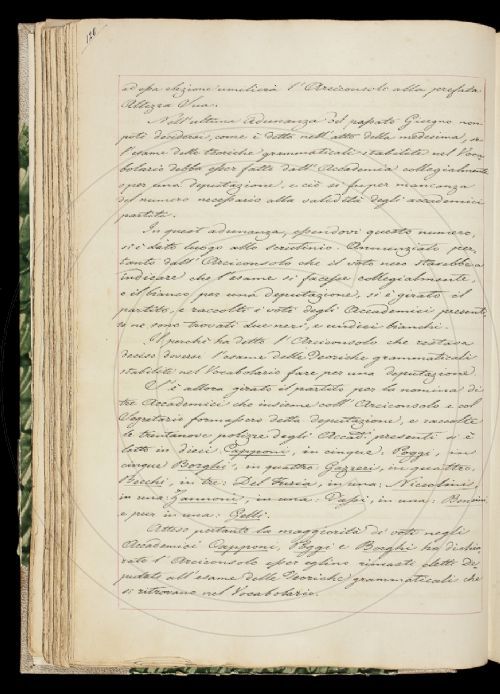 126
ad essa elezione umilierà l'Arciconsolo alla prefata
Altezza Sua.
Nell'ultima adunanza del passato Giugno non
potè decidersi, come è detto nell'atto della medesima, se
l'esame delle teoriche grammaticali stabilite nel Voca-
bolario debba esser fatto dall'Accademia collegialmente
o per una deputazione, e ciò si fu per mancanza
del numero necessario alla validità degli accademici
partiti.
In quest'adunanza, essendovi questo numero,
si è dato luogo allo scrutinio. Annunziato per-
tanto dall'Arciconsolo che il voto nero starebbe a
indicare che l'esame si facesse collegialmente,
e il bianco per una deputazione, si è girato il
partito, e raccolti i voti degli Accademici presenti,
se ne sono trovati due neri, e undici bianchi.
Il perchè ha detto l'Arciconsolo che restava
deciso doversi l'esame delle Teoriche grammaticali
stabilite nel Vocabolario fare per una deputazione.
S'è allora girato il partito per la nomina di
tre Accademici che insieme coll'Arciconsolo e col
Segretario formassero detta deputazione, e raccolte
le trentanove polizze degli Accad. presenti si è
letto in dieci Capponi, in cinque: Poggi, in
cinque Borghi, in quattro Gazzeri, in quattro:
Becchi, in tre: Del Furia, in una: Niccolini,
in una: Zannoni, in una: in una:
e pur in una: Gelli.
Atteso pertanto la maggiorità di voti negli
Accademici Capponi, Poggi e Borghi ha dichia-
rato l'Arciconsolo esser eglino rimasti eletti De-
putati all'esame delle Teoriche grammaticali che
si ritrovano nel Vocabolario.